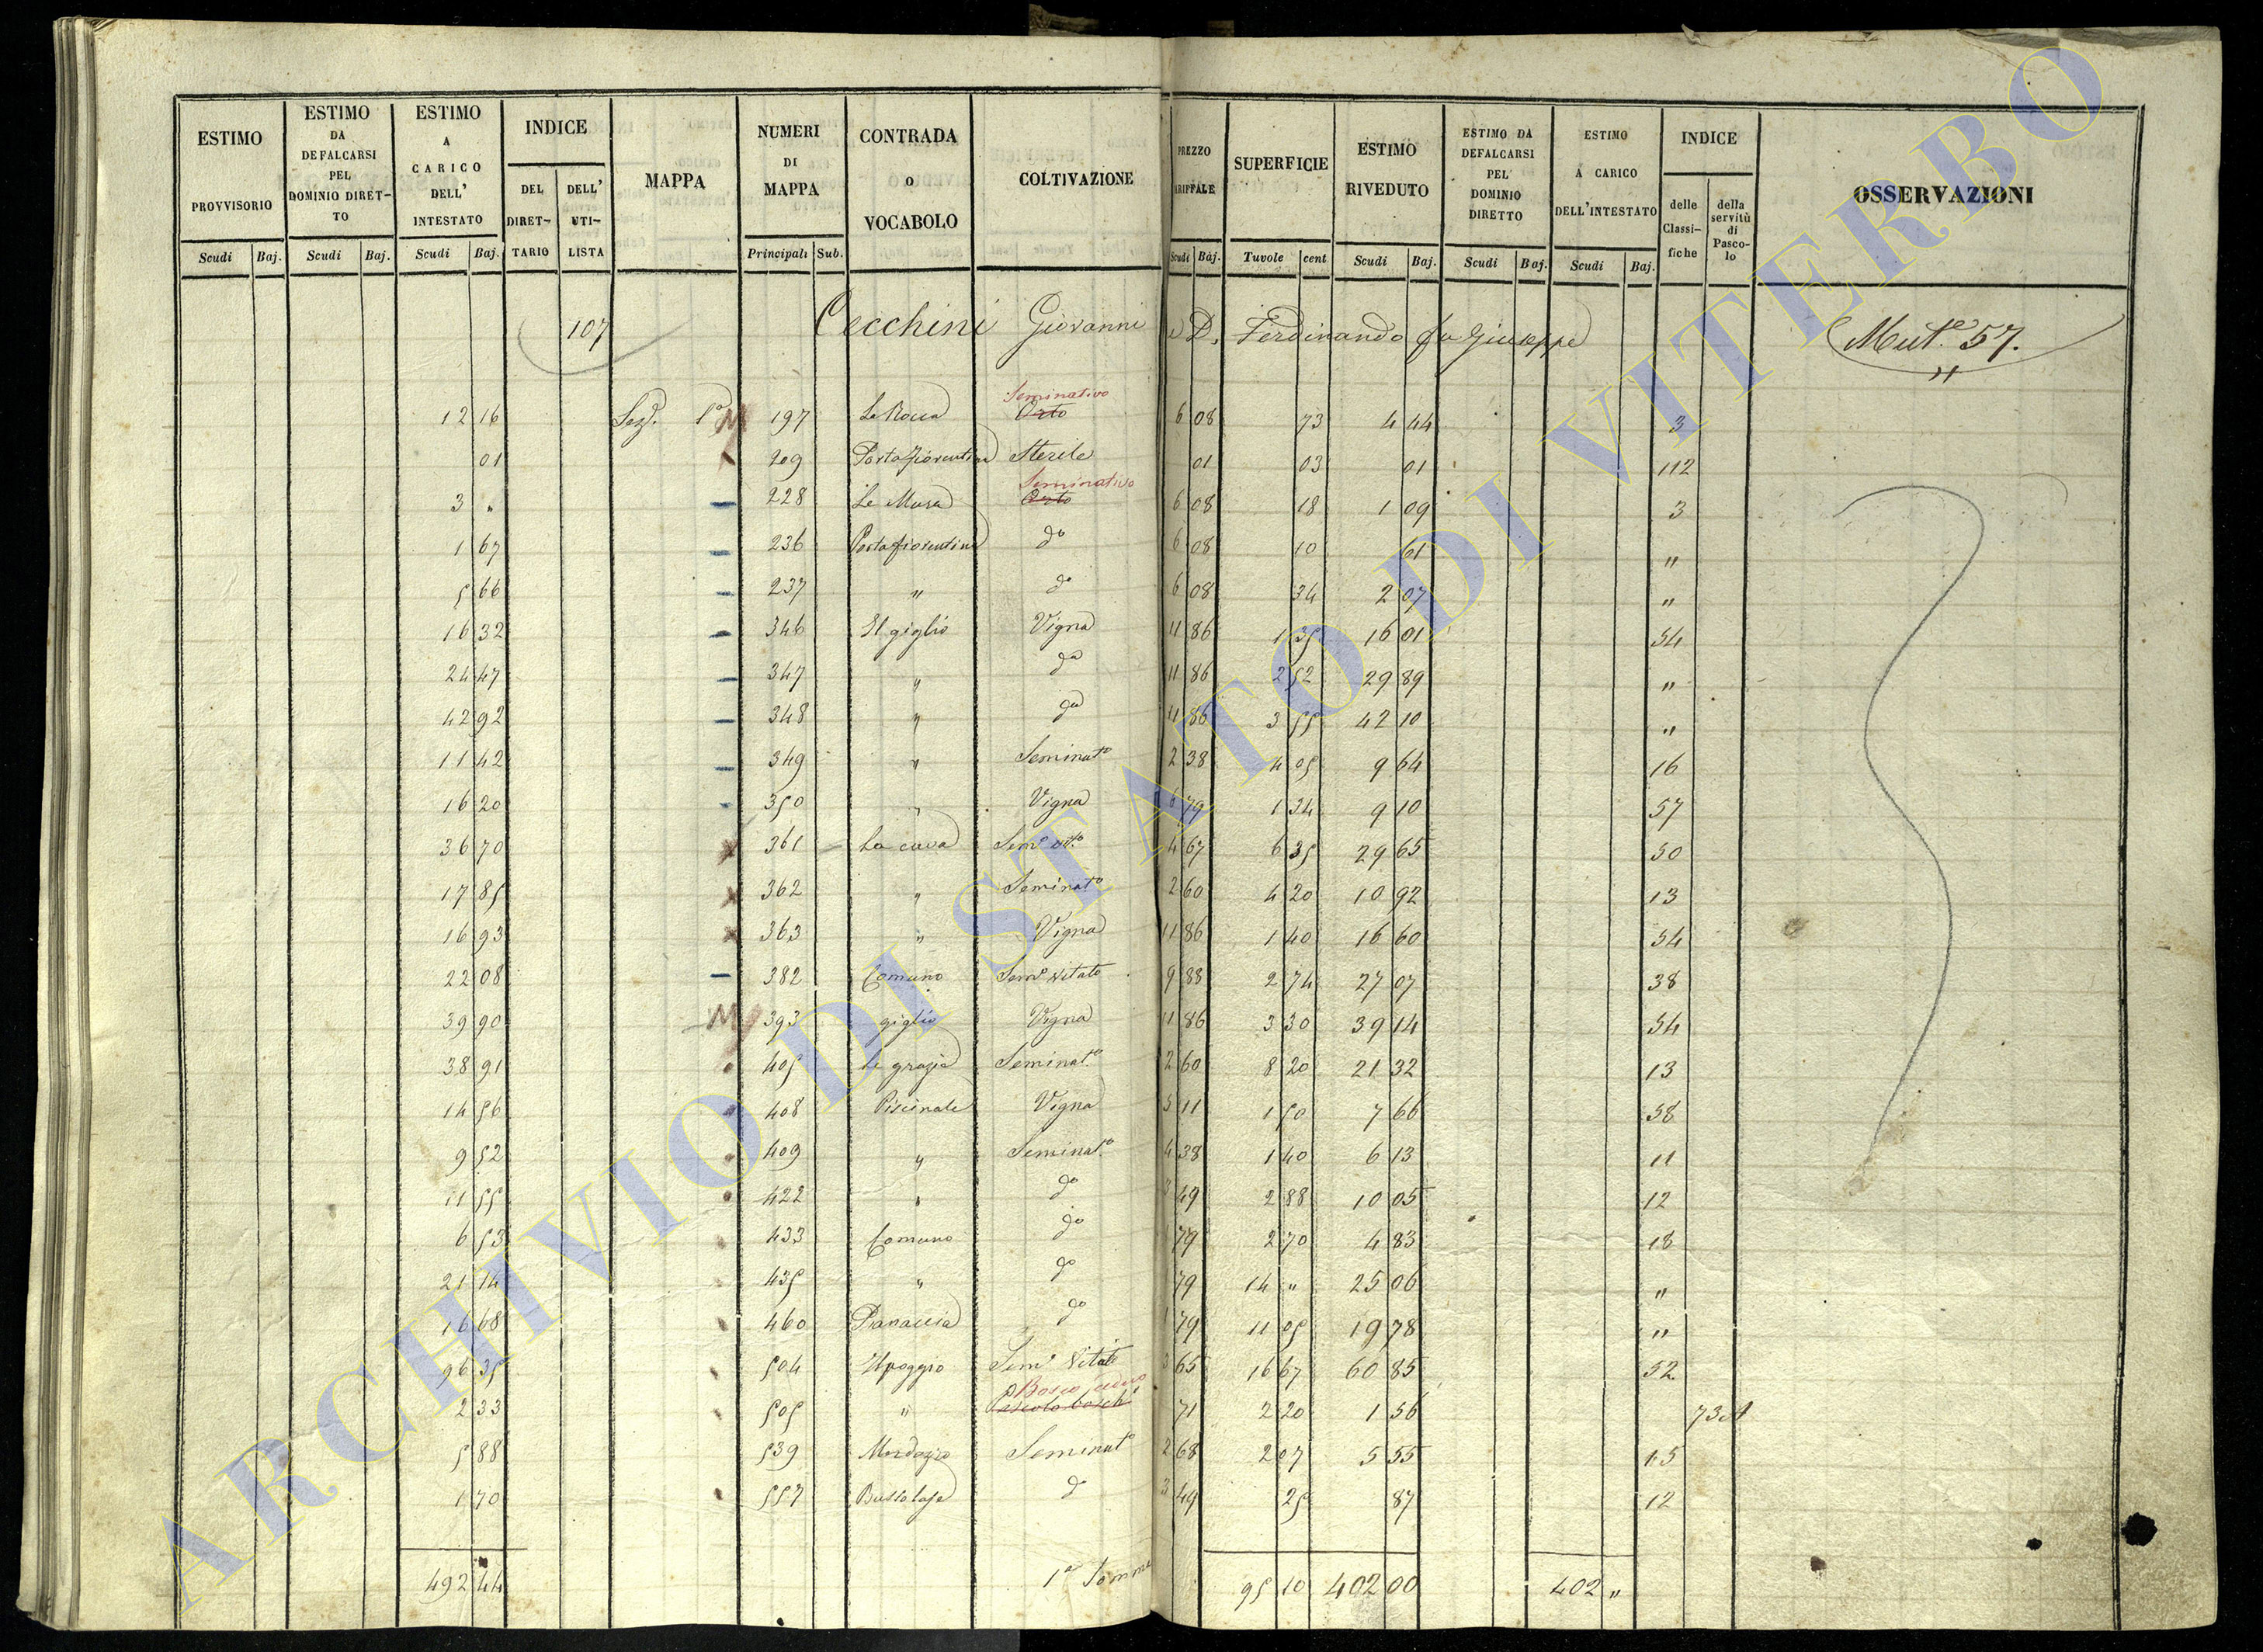 ESTIMO PROVVISORIO
ESTIMO DA DEFALCARSI PEL DOMINIO DIRET-TO
ESTIMO A CARICO DELL' INTESTATO
INDICE
DEL DIRET-TARIO
DELL' UTI-LISTA
MAPPA
NUMERI DI MAPPA
CONTRADA O VOCABOLO
COLTIVAZIONE
PREZZO
SUPERFICIE
ESTIMO RIVEDUTO
ESTIMO DA DEFALCARSI PEL DOMINIO DIRETTO
ESTIMO A CARICO DELL'INTESTATO
INDICE
delle Classi-fiche
della servitù di Pasco-lo
OSSERVAZIONI
Scudi Baj. Scudi Baj. Scudi Baj. Principali Sub. Scudi Baj. Tavole cent Scudi Baj. Scudi Baj. Scudi Baj.
107 Cecchini Giovanni e D. Ferdinando fu Giuseppe Mut.e 57.
Seminativo
12 16 Sez. 1a 197 Le Rocca Orto 6 08 73 4 44 3
01 209 Porta fiorentina Sterile 01 03 01 112
Seminativo
3 " 228 Le Mura Orto 6 08 18 1 09 3
1 67 236 Porta fiorentina do 6 08 10 61 "
5 66 237 " do 6 08 34 2 07 "
16 32 346 Il giglio Vigna 11 86 1 35 16 01 54
24 47 347 " do 11 86 2 52 29 89 "
42 92 348 " do 11 86 3 55 42 10 "
11 42 349 " Seminato 2 38 4 05 9 64 16
16 20 350 " Vigna 6 79 1 34 9 10 57
36 70 361 La cava Semo vito 4 67 6 35 29 65 50
17 85 362 " Seminato 2 60 4 20 10 92 13
16 93 363 " Vigna 11 86 1 40 16 60 54
22 08 382 Comuno Semo vitato 9 88 2 74 27 07 38
39 90 393 giglio Vigna 11 86 3 30 39 14 54
38 91 405 Le grazie Seminato 2 60 8 20 21 32 13
14 56 408 Piscinale Vigna 5 11 1 50 7 66 58
9 52 409 " Seminato 4 38 1 40 6 13 11
11 55 422 " do 3 49 2 88 10 05 12
6 53 433 Comuno do 1 79 2 70 4 83 18
21 14 435 " do 79 14 " 25 06 "
16 68 460 do 1 79 11 05 19 78 "
96 35 504 Il poggio Semo Vitato 3 65 16 67 60 85 52
Bosco ceduo
2 33 505 " Pascolo bosch 71 2 20 1 56 73
5 88 539 Seminato 2 68 2 07 5 55 15
1 70 557 do 3 49 25 87 12
492 44 1a Somma 95 10 402 00 402 "
ARCHIVIO DI STATO DI VITERBO